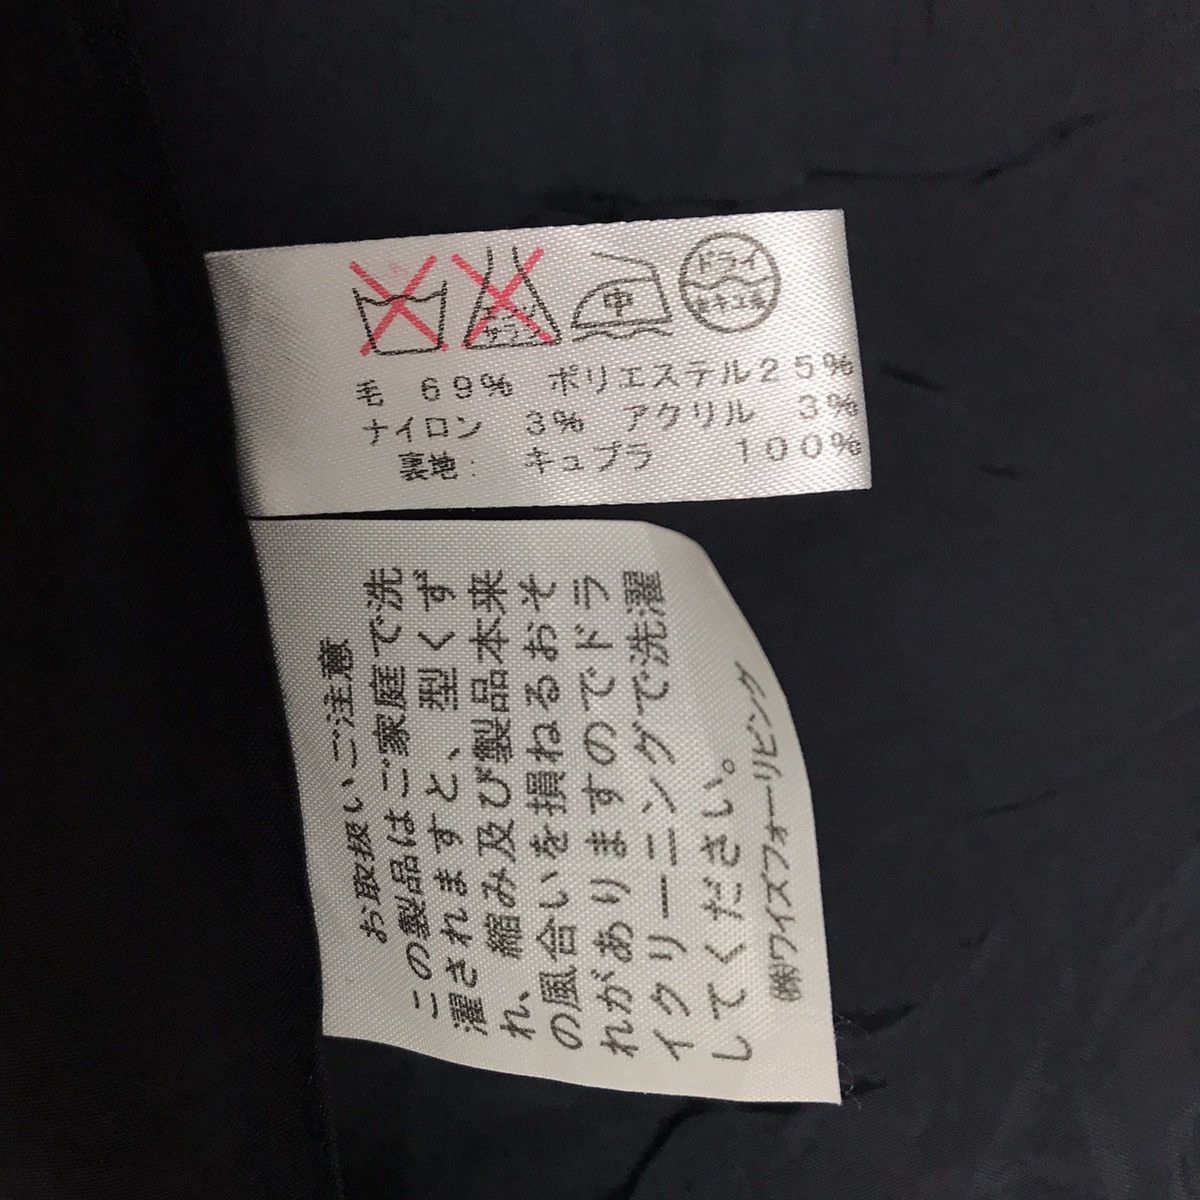 サラシ
中
ドライ
セキユ系
毛 69% ポリエステル25%
ナイロン 3% アクリル 3%
裏地: キュプラ 100%
お取扱いご注意
この製品はご家庭で洗
濯されますと、型くず
れ、縮み及び製品本来
の風合いを損ねるおそ
れがありますのでドラ
イクリーニングで洗濯
してください。
㈱ワイズフォーリビング